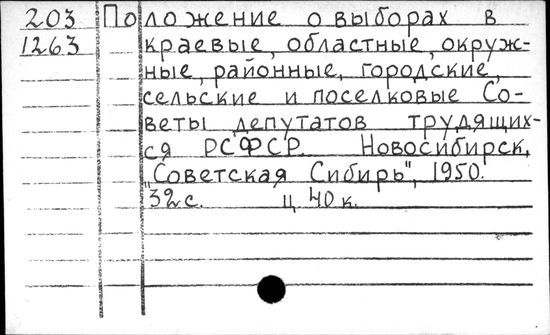 203 Положение о выборах в
1263 краевые, областные, окруж-
ные, районные, городские,
сельские и поселковые Со-
веты депутатов трудящих-
ся РСФСР. Новосибирск,
"Советская Сибирь", 1950.
32 с. ц. 40 к.